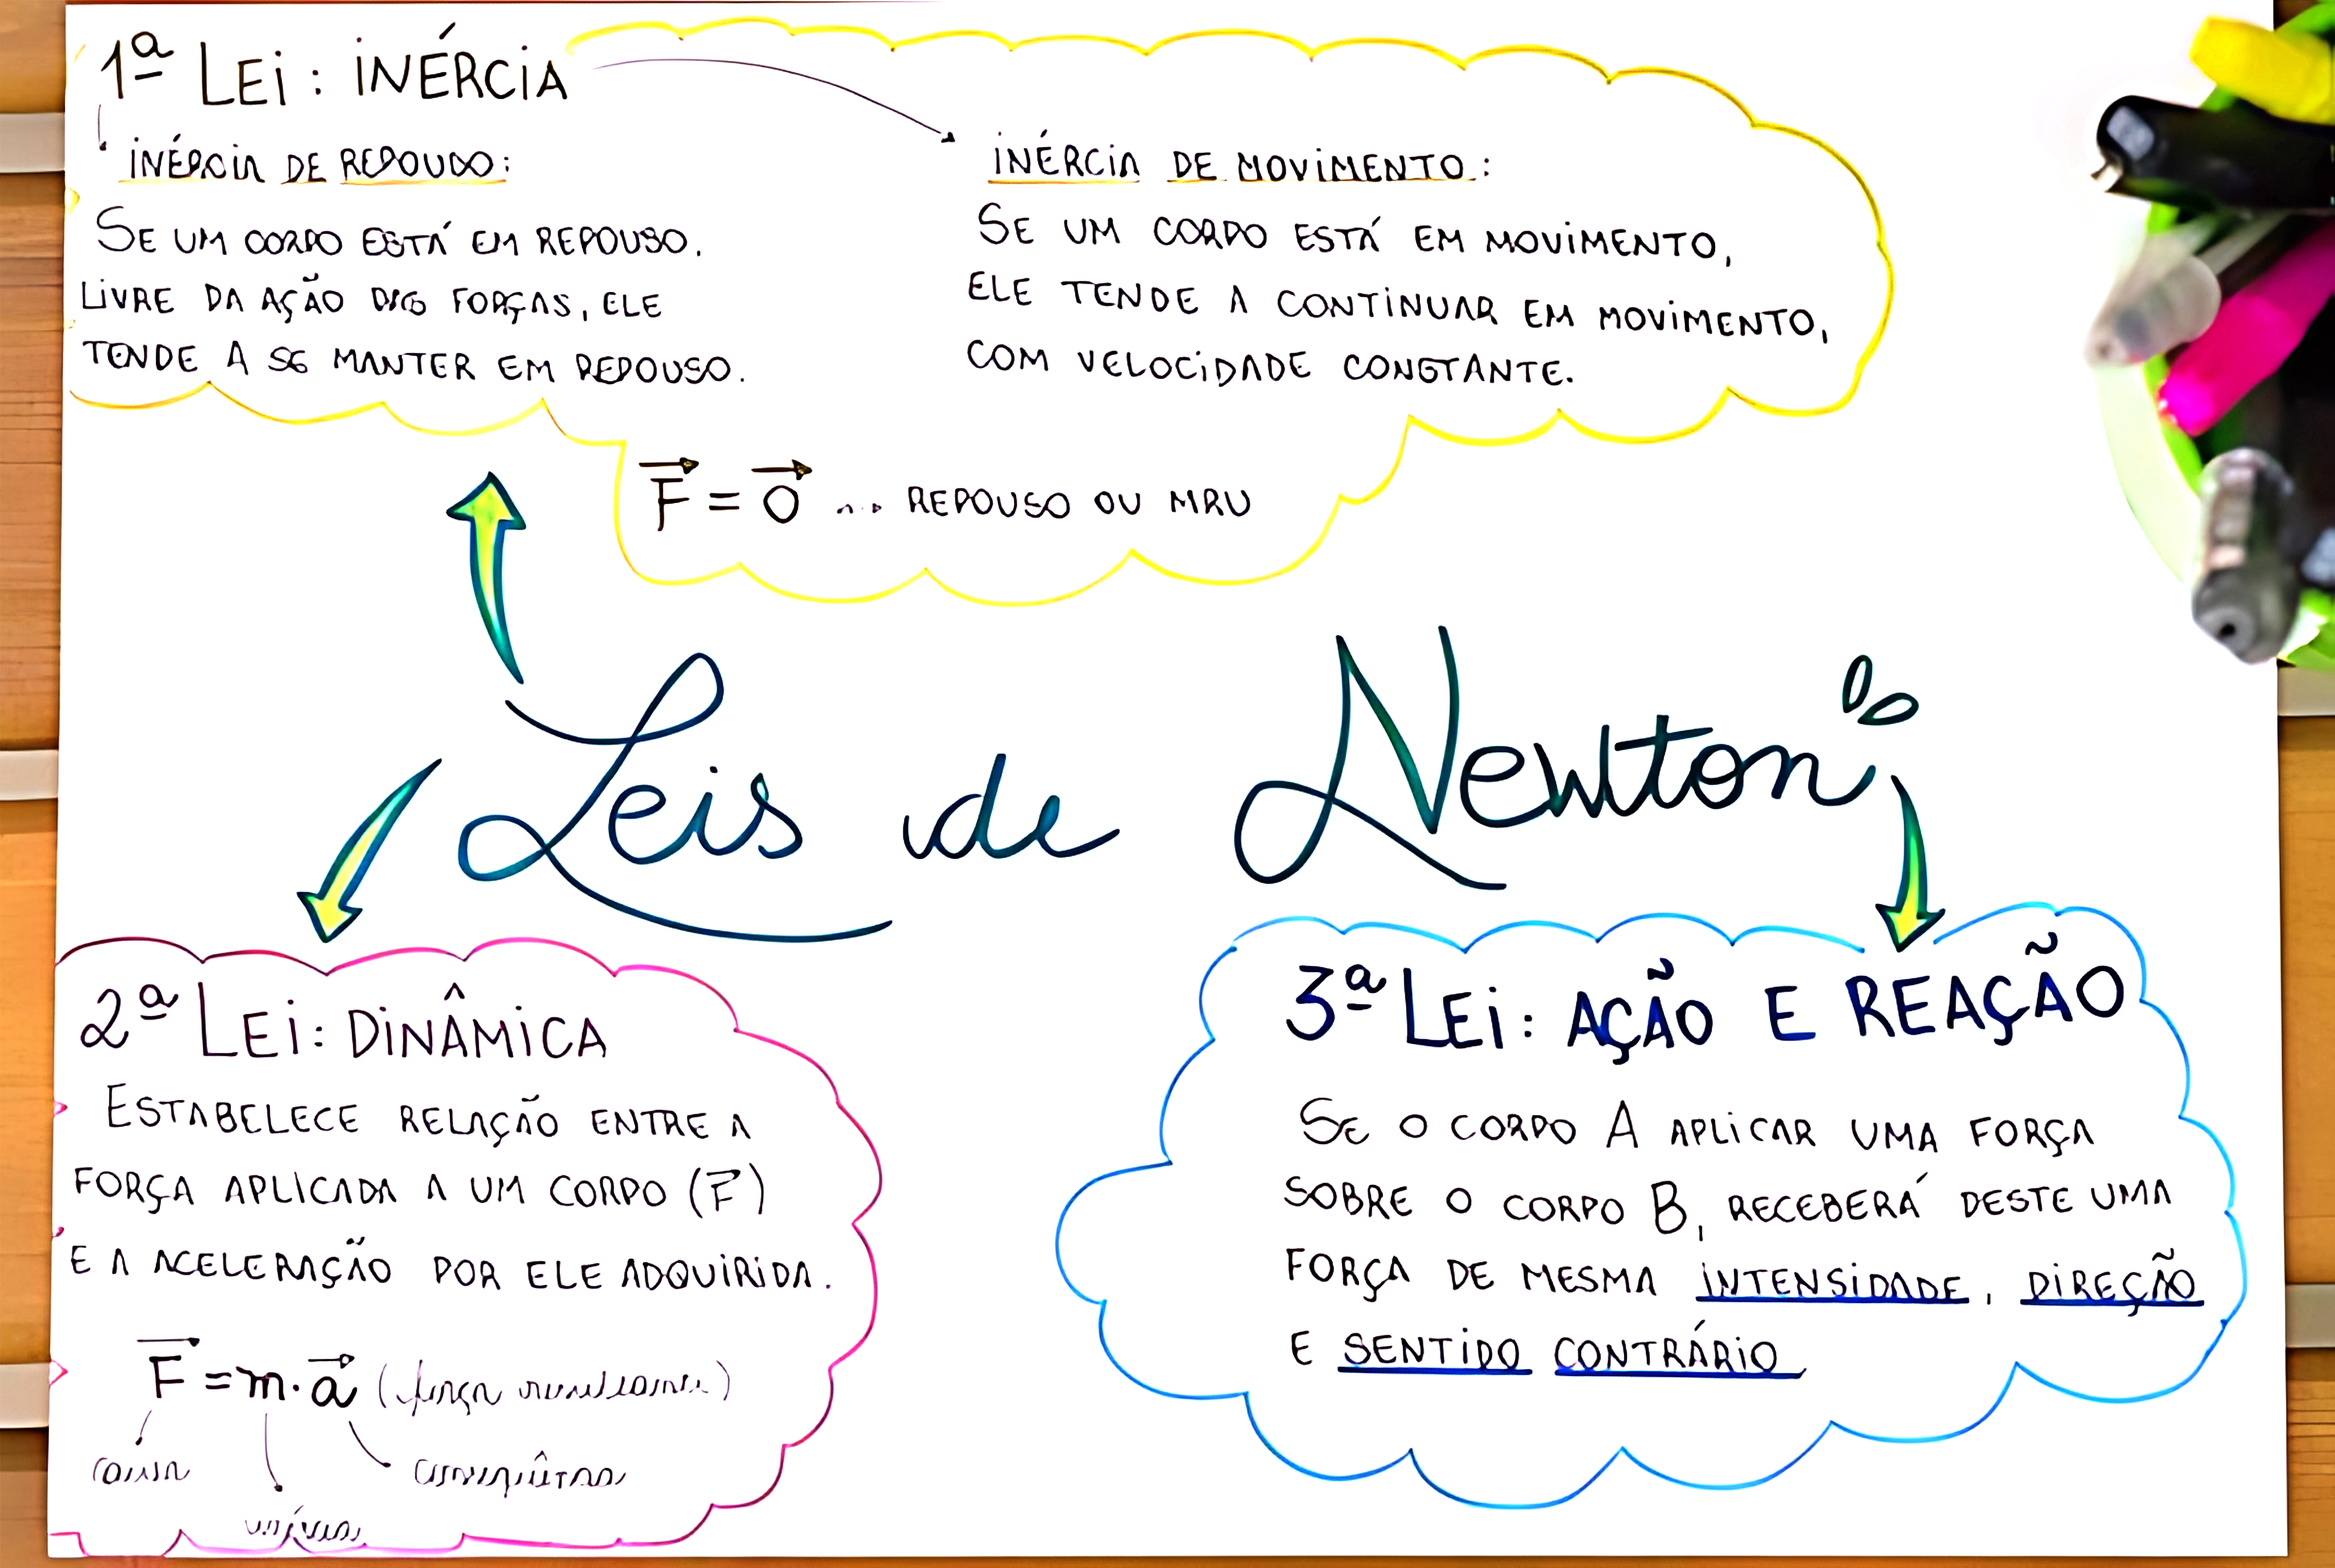 1ª LEI: INÉRCIA
INÉRCIA DE REPOUSO:
SE UM CORPO ESTÁ EM REPOUSO.
LIVRE DA AÇÃO DAS FORÇAS, ELE
TENDE A SE MANTER EM REPOUSO.
INÉRCIA DE MOVIMENTO:
SE UM CORPO ESTÁ EM MOVIMENTO,
ELE TENDE A CONTINUAR EM MOVIMENTO,
COM VELOCIDADE CONSTANTE.
F⃗ = 0⃗ ... REPOUSO OU MRU
Leis de Newton
2ª LEI: DINÂMICA
ESTABELECE RELAÇÃO ENTRE A
FORÇA APLICADA A UM CORPO (F⃗)
E A ACELERAÇÃO POR ELE ADQUIRIDA.
F⃗ = m·a⃗ (força resultante)
causa
3ª LEI: AÇÃO E REAÇÃO
SE O CORPO A APLICAR UMA FORÇA
SOBRE O CORPO B, RECEBERÁ DESTE UMA
FORÇA DE MESMA INTENSIDADE, DIREÇÃO
E SENTIDO CONTRÁRIO